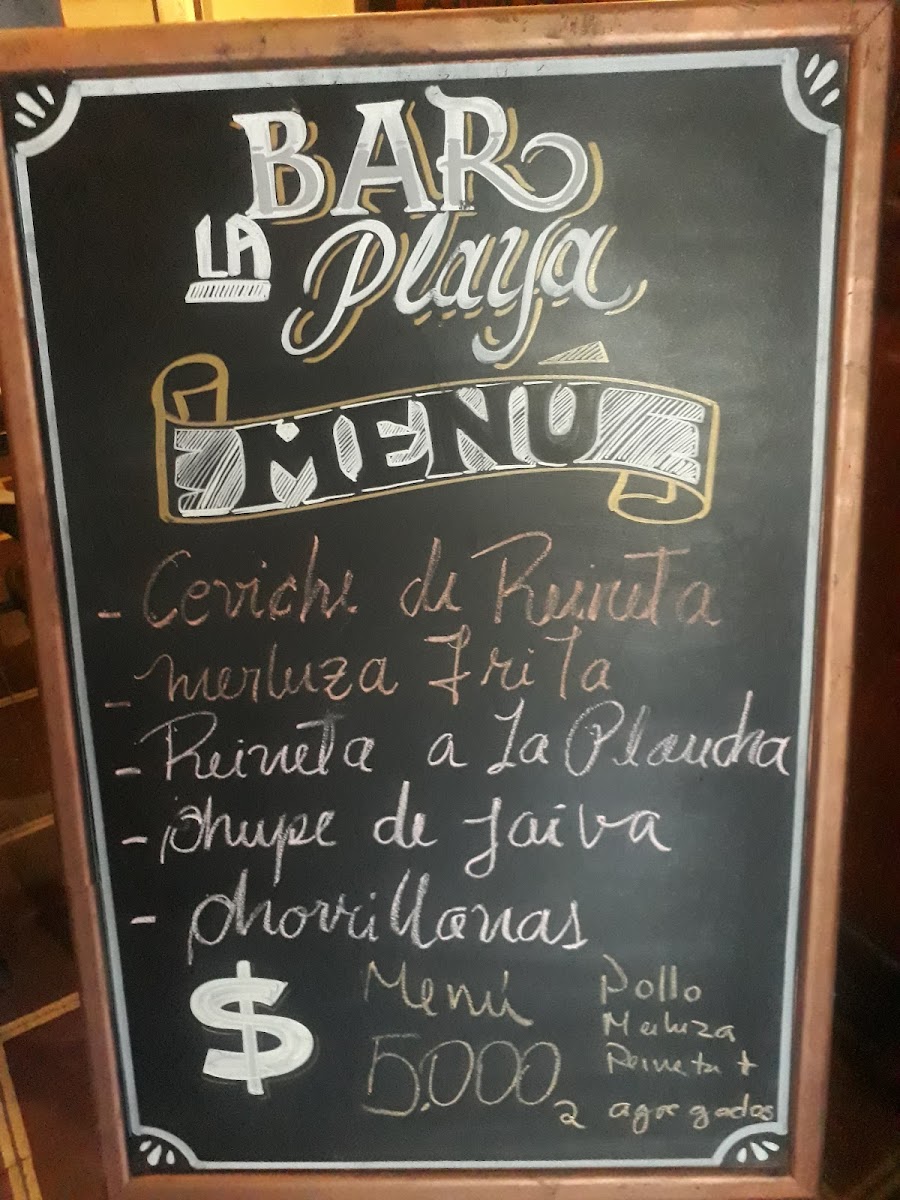 BAR
LA Playa
MENÚ
- Ceviche de Reineta
- merluza Frita
- Reineta a La Plancha
- Chupe de Jaiva
- Chorrillanas
$ Menú
5.000
Pollo
Merluza
Reineta +
2 agregados